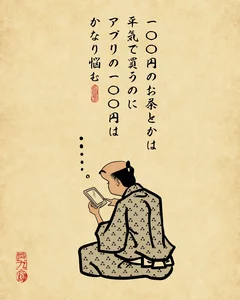 一〇〇円のお茶とかは
平気で買うのに
アプリの一〇〇円は
かなり悩む